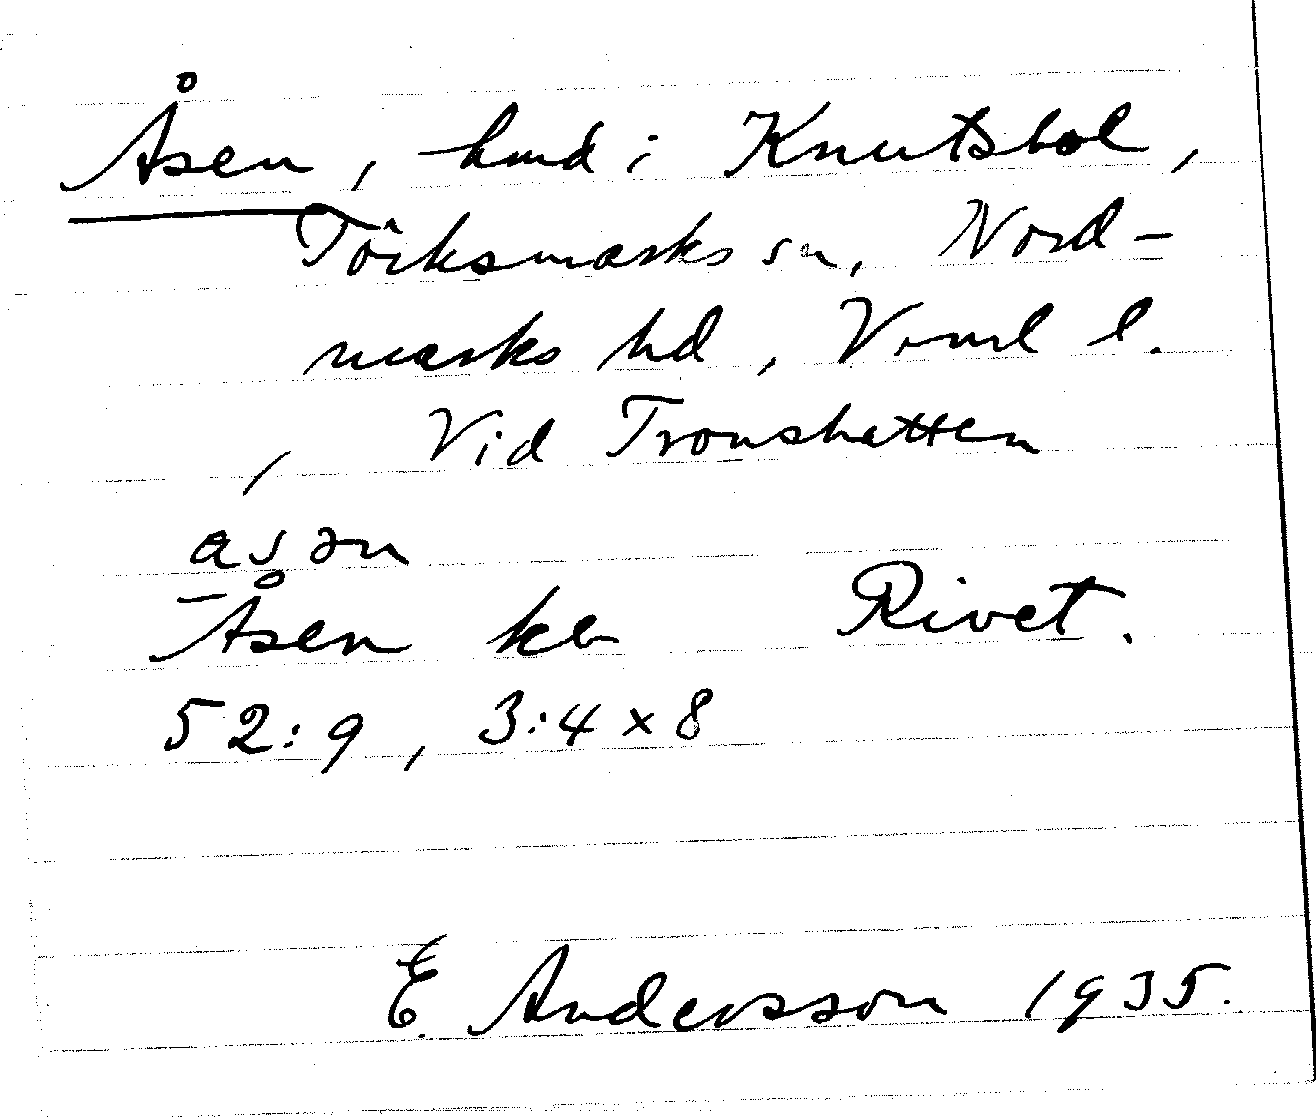 Åsen, hmd i Knutsbol,
Töcksmarks sn, Nord-
marks hd, Vrml l.
Vid Tronshatten
asən
Åsen kb Rivet.
52:9, 3:4 x 8
E. Andersson 1935.